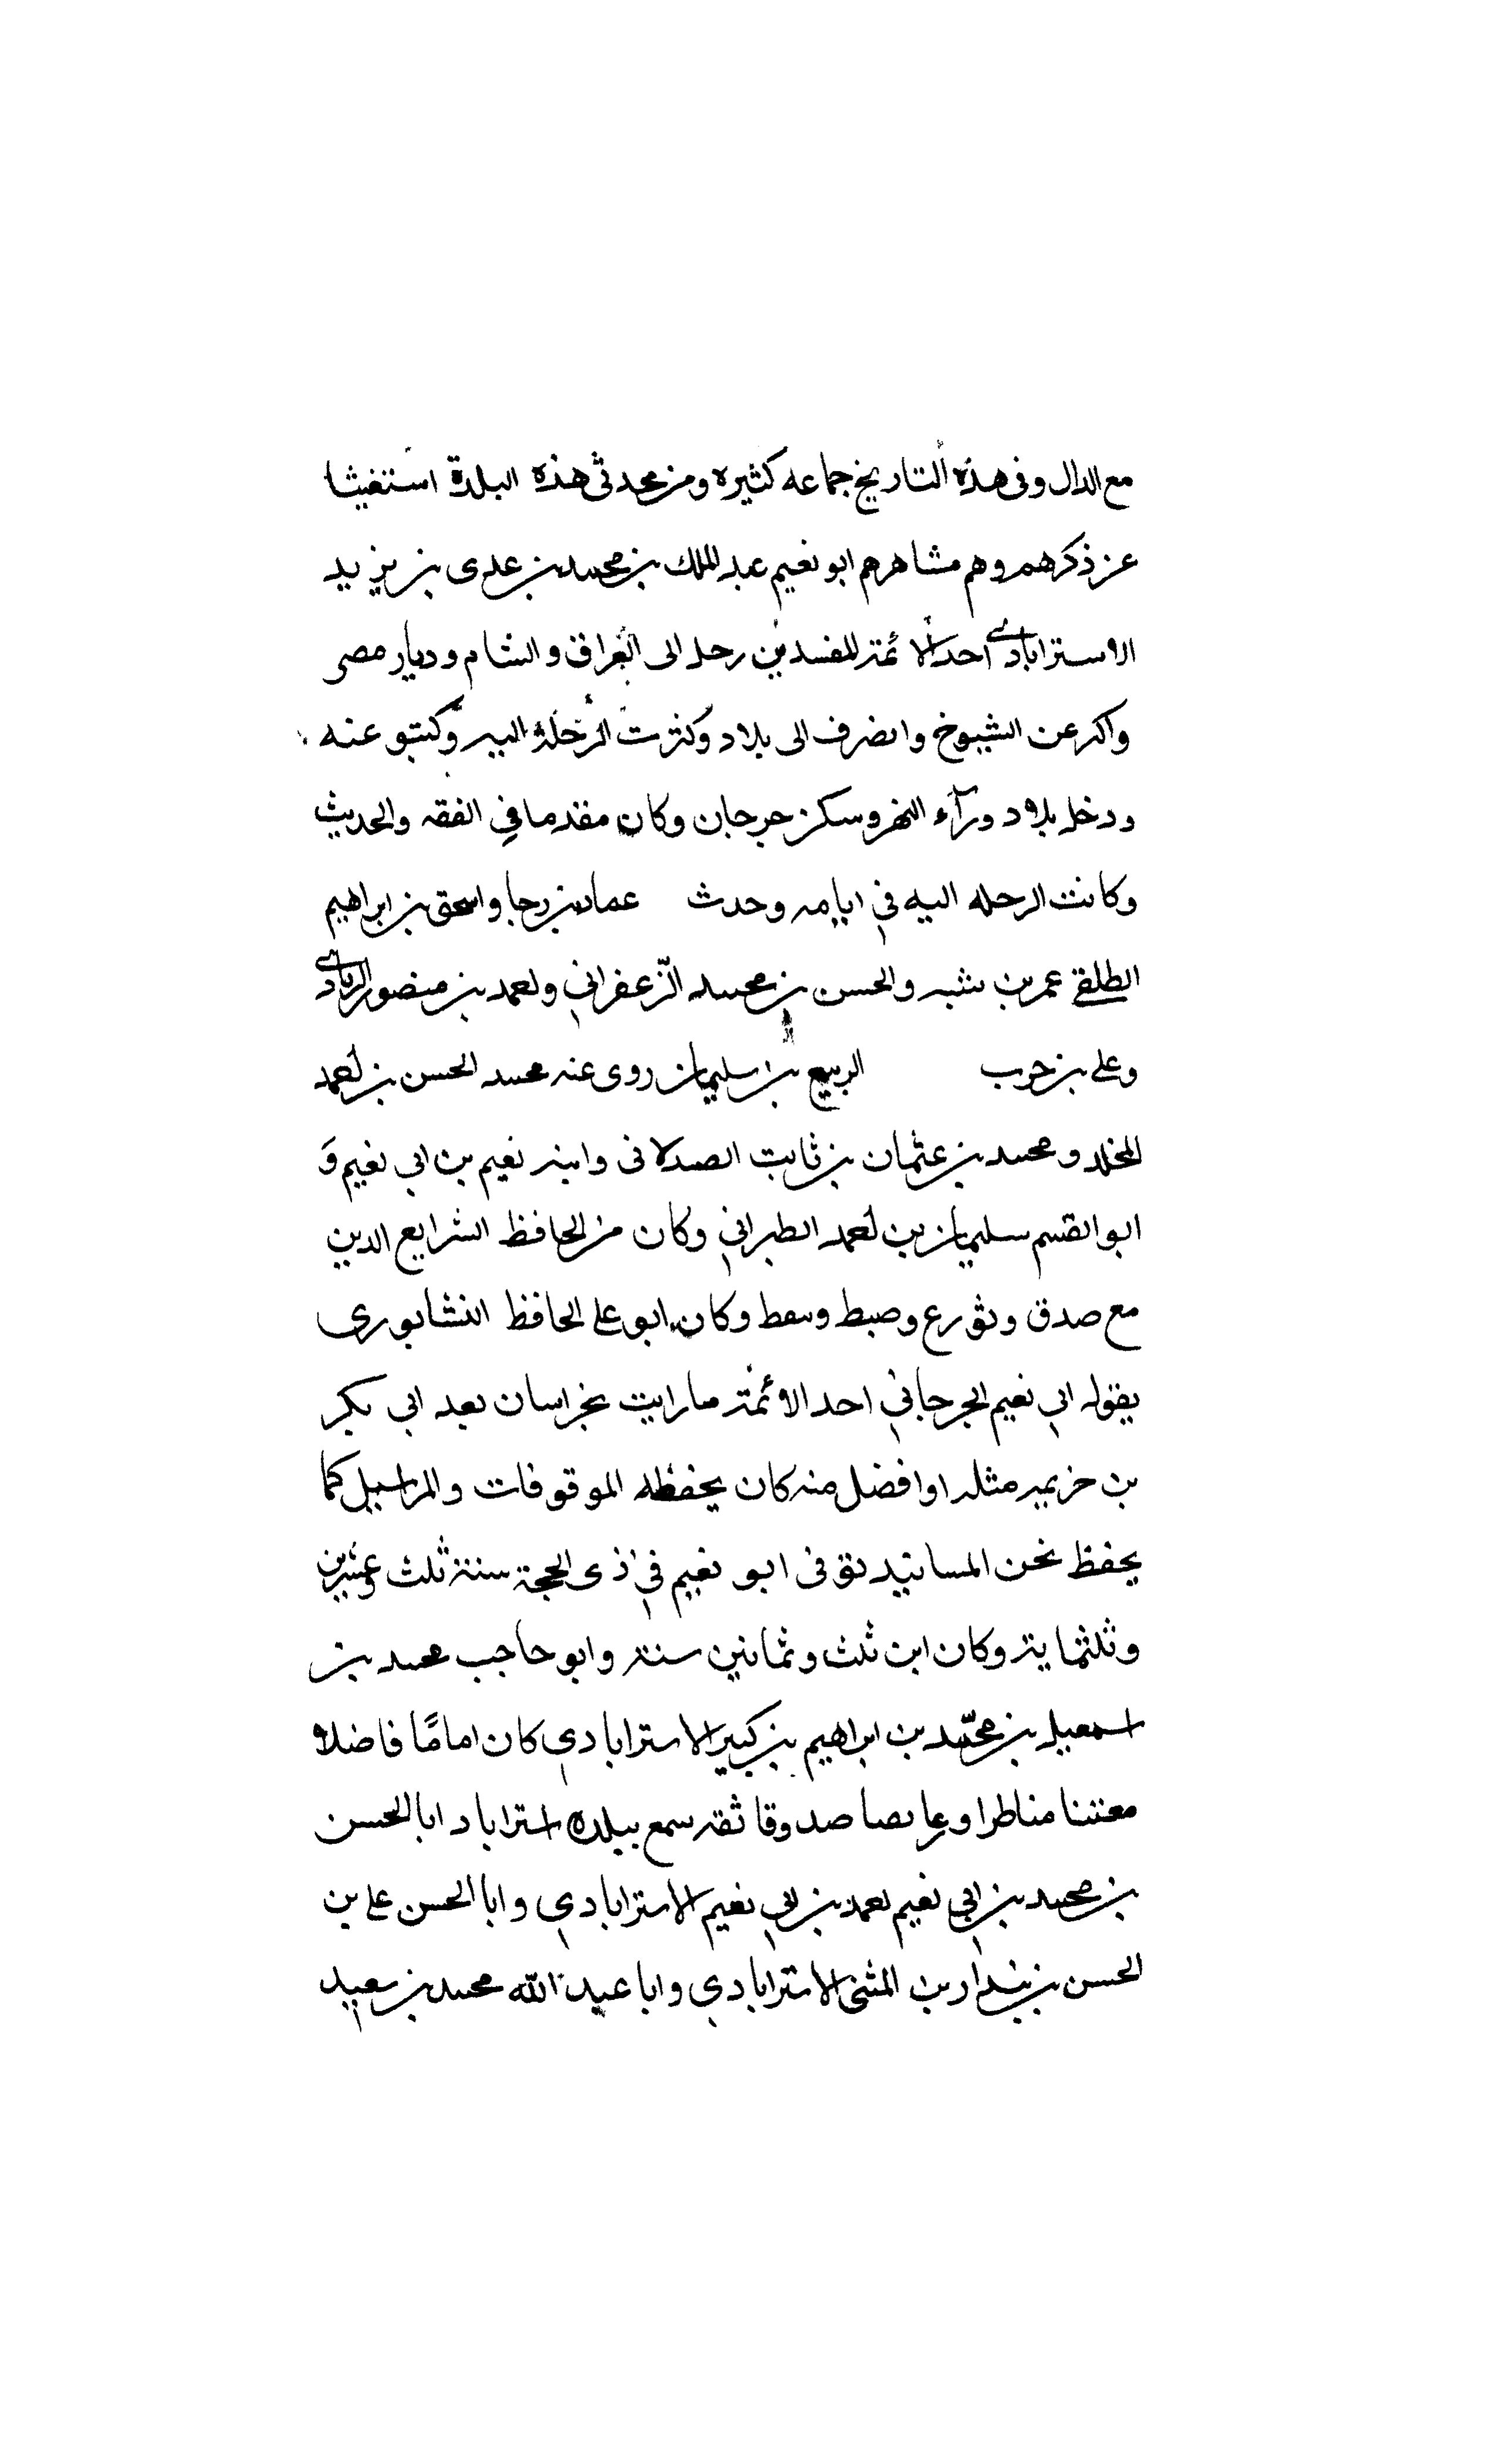 مع الدال وفى هذه التاريخ جماعه كثيره ومن محدثى هذه البلدة استغيثا
عن ذكرهم وهم مشاهرهم ابو نعيم عبد الملك بن محمد بن عدى بن يزيد
الاستراباذى احد الائمة المفسدين رحل الى العراق والشام وديار مصر
واكر عن الشيوخ وانصرف الى بلاد وكثرت الرحلة اليه وكتبو عنه
ودخل بلاد ورآء النهر وسكن جرجان وكان مقدما في الفقه والحديث
وكانت الرحله اليه في ايامه وحدث عمار بن رجا واسحق بن ابراهيم
الطلقي عمر بن شبه والحسن بن محمد الزّعفراني واحمد بن منصور الرمادي
وعلى بن حرب الربيع بن سليمان روى عنه محمد الحسن بن احمد
المخلد ومحمد بن عثمان بن ثابت الصدلانى وابنه نعيم بن ابي نعيم وَ
ابو القسم سليمان بن احمد الطبراني وكان من الحافظ الشرايع الدين
مع صدق وتورع وضبط وسقط وكان ابو على الحافظ النشابورى
يقوله ابي نعيم الجرجاني احد الائمة ما رايت بخراسان بعد ابي بكر
بن خزيمه مثله او افضل منه كان يحفظه الموقوفات والمراسيل كما
يحفظ نحن المسانيد توفى ابو نعيم في ذى الحجة سنة ثلث وعشرين
وثلثماية وكان ابن ثلث وثمانين سنة وابو حاجب محمد بن
اسمعيل بن محمّد بن ابراهيم بن كبير الاستراباذي كان امامًا فاضلا
مناظرا صدوقا ثقه سمع ببلده استراباد ابا الحسن
بن محمد بن ابي نعيم احمد بن ابي نعيم الاستراباذي وابا الحسن على بن
الحسن بن بندار بن المثنى الاستراباذي وابا عبد الله محمد بن سعيد